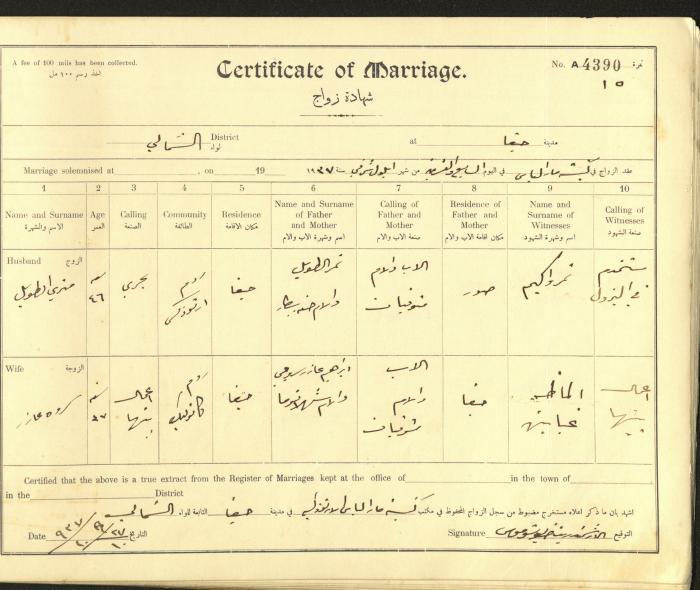 A fee of 100 mils has been collected.
اخذ رسم ١٠٠ مل
Certificate of Marriage.
شهادة زواج
No. A 4390 نمرة
١٥
District
لواء
الشمالي
at
حيفا
مدينة
Marriage solemnised at , on 19 ١٩٣٧ سنة من شهر في اليوم عقد الزواج في
1 2 3 4 5 6 7 8 9 10
Name and Surname
الاسم والشهرة
Age
العمر
Calling
الصنعة
Community
الطائفة
Residence
مكان الاقامة
Name and Surname
of Father
and
Mother
اسم وشهرة الاب والام
Calling of
Father and
Mother
صنعة الاب والام
Residence of
Father and
Mother
مكان اقامة الاب والام
Name and
Surname of
Witnesses
اسم وشهرة الشهود
Calling of
Witnesses
صنعة الشهود
Husband الزوج
الطويل
سنة
٤٦
بحري
روم
ارثوذكس
حيفا
نمر الطويل
الاب والام
متوفيان
صور
نمر واكيم
مستخدم
في البترول
Wife الزوجة
عازر
سنة
اعمال
بيتها
روم
كاثوليك
حيفا
ابراهيم عازر
الاب
والام
متوفيان
حيفا
اعمال
بيتها
Certified that the above is a true extract from the Register of Marriages kept at the office of in the town of
in the District
اشهد بان ما ذكر اعلاه مستخرج مضبوط من سجل الزواج المحفوظ في مكتب كنيسة مار الياس في مدينة حيفا التابعة للواء الشمالي
Date التاريخ
Signature التوقيع